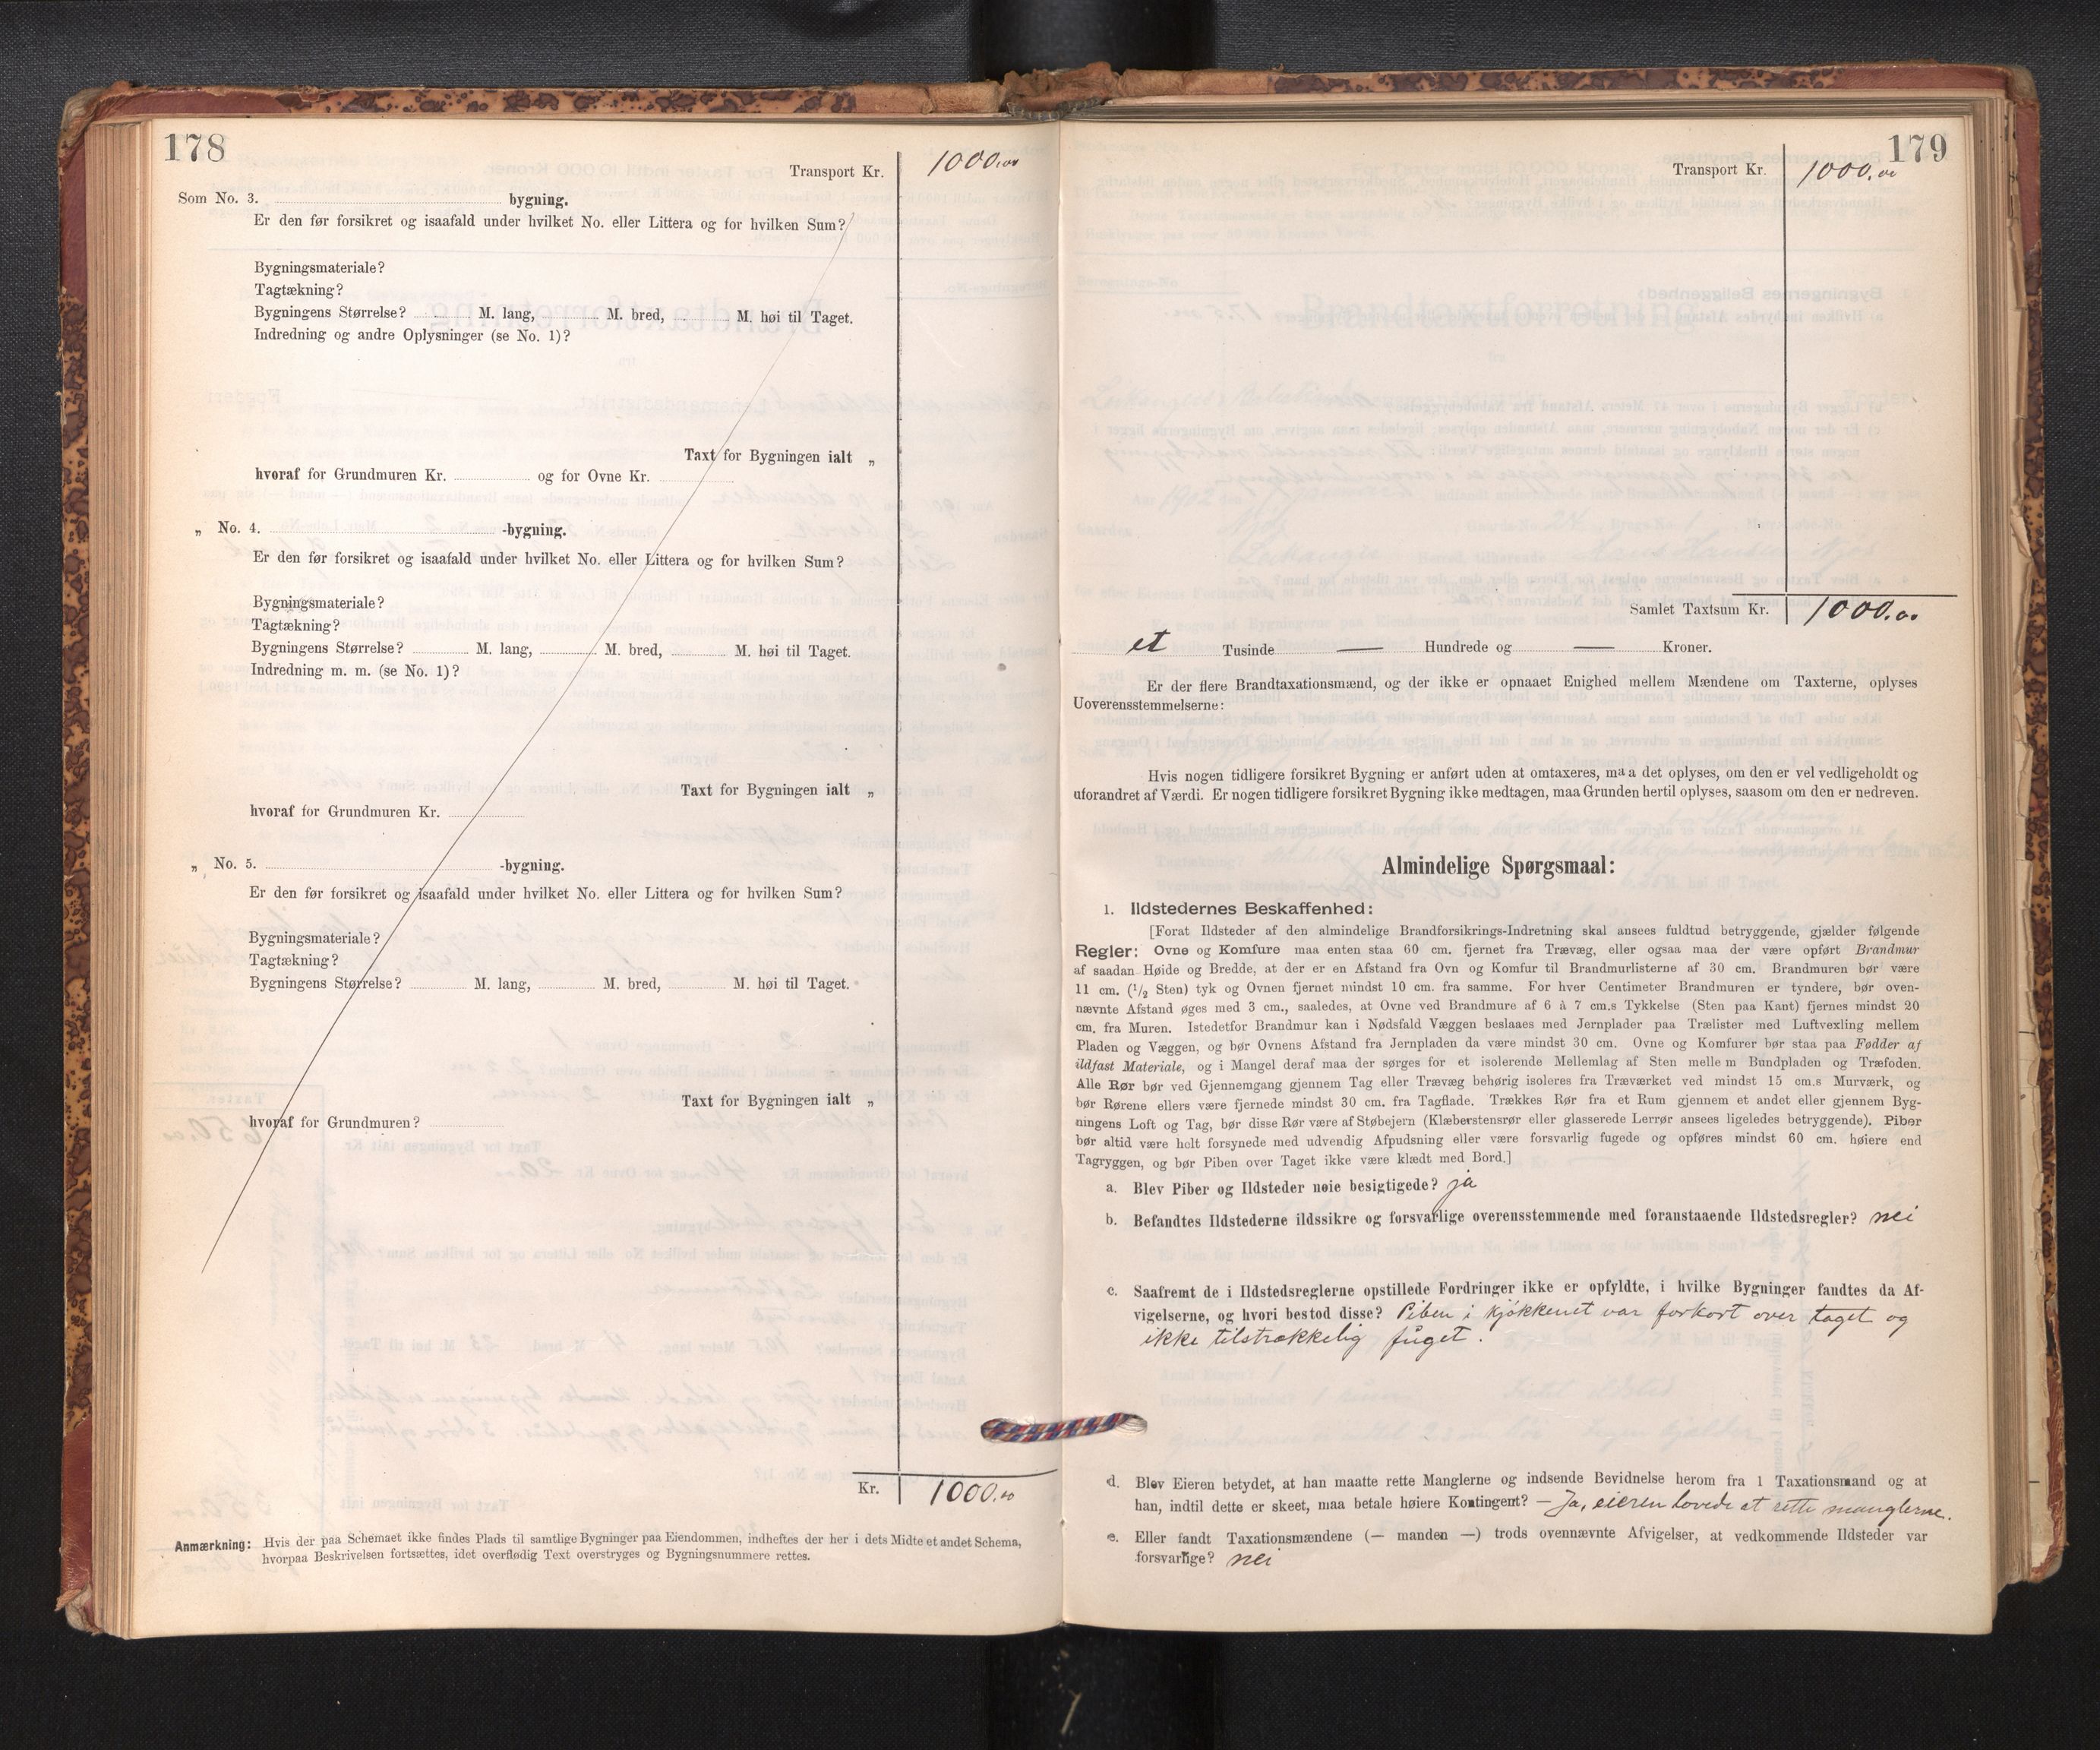 178
Transport Kr. 1000.00
Som No. 3. bygning.
Er den før forsikret og isaafald under hvilket No. eller Littera og for hvilken Sum?
Bygningsmateriale?
Tagtækning?
Bygningens Størrelse? M. lang, M. bred, M. høi til Taget.
Indredning og andre Oplysninger (se No. 1)?
Taxt for Bygningen ialt „
hvoraf for Grundmuren Kr. og for Ovne Kr.
„ No. 4. -bygning.
Er den før forsikret og isaafald under hvilket No. eller Littera og for hvilken Sum?
Bygningsmateriale?
Tagtækning?
Bygningens Størrelse? M. lang, M. bred, M. høi til Taget.
Indredning m. m. (se No. 1)?
Taxt for Bygningen ialt „
hvoraf for Grundmuren Kr.
„ No. 5. -bygning.
Er den før forsikret og isaafald under hvilket No. eller Littera og for hvilken Sum?
Bygningsmateriale?
Tagtækning?
Bygningens Størrelse? M. lang, M. bred, M. høi til Taget.
Taxt for Bygningen ialt „
hvoraf for Grundmuren?
Kr. 1000.00
Anmærkning: Hvis der paa Schemaet ikke findes Plads til samtlige Bygninger paa Eiendommen, indheftes der her i dets Midte et andet Schema,
hvorpaa Beskrivelsen fortsættes, idet overflødig Text overstryges og Bygningsnummere rettes.
179
Transport Kr. 1000.00
Samlet Taxtsum Kr. 1000.00
et Tusinde — Hundrede og — Kroner.
Er der flere Brandtaxationsmænd, og der ikke er opnaaet Enighed mellem Mændene om Taxterne, oplyses
Uoverensstemmelserne:
Hvis nogen tidligere forsikret Bygning er anført uden at omtaxeres, maa det oplyses, om den er vel vedligeholdt og
uforandret af Værdi. Er nogen tidligere forsikret Bygning ikke medtagen, maa Grunden hertil oplyses, saasom om den er nedreven.
Almindelige Spørgsmaal:
1. Ildstedernes Beskaffenhed:
[Forat Ildsteder af den almindelige Brandforsikrings-Indretning skal ansees fuldtud betryggende, gjælder følgende
Regler: Ovne og Komfure maa enten staa 60 cm. fjernet fra Trævæg, eller ogsaa maa der være opført Brandmur
af saadan Høide og Bredde, at der er en Afstand fra Ovn og Komfur til Brandmurlisterne af 30 cm. Brandmuren bør være
11 cm. (1/2 Sten) tyk og Ovnen fjernet mindst 10 cm. fra samme. For hver Centimeter Brandmuren er tyndere, bør oven-
nævnte Afstand øges med 3 cm., saaledes, at Ovne ved Brandmure af 6 à 7 cm.s Tykkelse (Sten paa Kant) fjernes mindst 20
cm. fra Muren. Istedetfor Brandmur kan i Nødsfald Væggen beslaaes med Jernplader paa Trælister med Luftvexling mellem
Pladen og Væggen, og bør Ovnens Afstand fra Jernpladen da være mindst 30 cm. Ovne og Komfurer bør staa paa Fødder af
ildfast Materiale, og i Mangel deraf maa der sørges for et isolerende Mellemlag af Sten mellem Bundpladen og Træfoden.
Alle Rør bør ved Gjennemgang gjennem Tag eller Trævæg behørig isoleres fra Træværket ved mindst 15 cm.s Murværk, og
bør Rørene ellers være fjernede mindst 30 cm. fra Tagflade. Trækkes Rør fra et Rum gjennem et andet eller gjennem Byg-
ningens Loft og Tag, bør disse Rør være af Støbejern (Klæberstensrør eller glasserede Lerrør ansees ligeledes betryggende). Piber
bør altid være helt forsynede med udvendig Afpudsning eller være forsvarlig fugede og opføres mindst 60 cm. høiere end
Tagryggen, og bør Piben over Taget ikke være klædt med Bord.]
a. Blev Piber og Ildsteder nøie besigtigede? ja
b. Befandtes Ildstederne ildssikre og forsvarlige overensstemmende med foranstaaende Ildstedsregler? nei
c. Saafremt de i Ildstedsreglerne opstillede Fordringer ikke er opfyldte, i hvilke Bygninger fandtes da Af-
vigelserne, og hvori bestod disse? Piben i kjøkkenet var forkort over taget og
ikke tilstrækkelig fuget.
d. Blev Eieren betydet, at han maatte rette Manglerne og indsende Bevidnelse herom fra 1 Taxationsmand og at
han, indtil dette er skeet, maa betale høiere Kontingent? — Ja, eieren lovede at rette manglerne.
e. Eller fandt Taxationsmændene (— manden —) trods ovennævnte Afvigelser, at vedkommende Ildsteder var
forsvarlige? nei